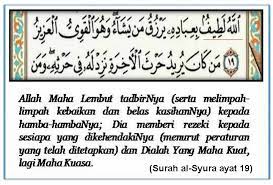 ٱللَّهُ لَطِيفٌۢ بِعِبَادِهِۦ يَرْزُقُ مَن يَشَآءُ ۖ وَهُوَ ٱلْقَوِىُّ ٱلْعَزِيزُ
﴿١٩﴾ مَن كَانَ يُرِيدُ حَرْثَ ٱلْـَٔاخِرَةِ نَزِدْ لَهُۥ فِى حَرْثِهِۦ ۖ وَمَن
Allah Maha Lembut tadbirNya (serta melimpah-
limpah kebaikan dan belas kasihanNya) kepada
hamba-hambaNya; Dia memberi rezeki kepada
sesiapa yang dikehendakiNya (menurut peraturan
yang telah ditetapkan) dan Dialah Yang Maha Kuat,
lagi Maha Kuasa.
(Surah al-Syura ayat 19)